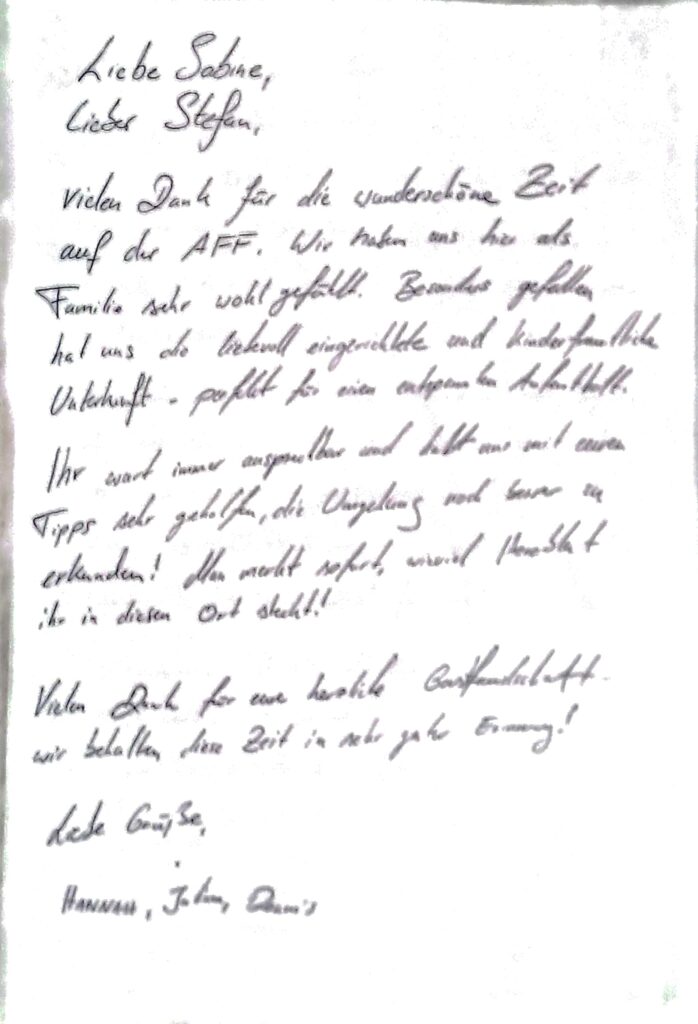 Liebe Sabine,
Lieber Stefan,
vielen Dank für die wunderschöne Zeit
auf der AFF. Wir haben uns hier als
Familie sehr wohl gefühlt. Besonders gefallen
hat uns die liebevoll eingerichtete und kinderfreundliche
Unterkunft - perfekt für einen entspannten Aufenthalt.
Ihr wart immer ansprechbar und habt uns mit euren
Tipps sehr geholfen, die Umgebung noch besser zu
erkunden! Man merkt sofort, wieviel Herzblut
ihr in diesen Ort steckt!
Vielen Dank für eure herzliche Gastfreundschaft.
wir behalten diese Zeit in sehr guter Erinnerung!
Liebe Grüße,
HANNAH, Dennis